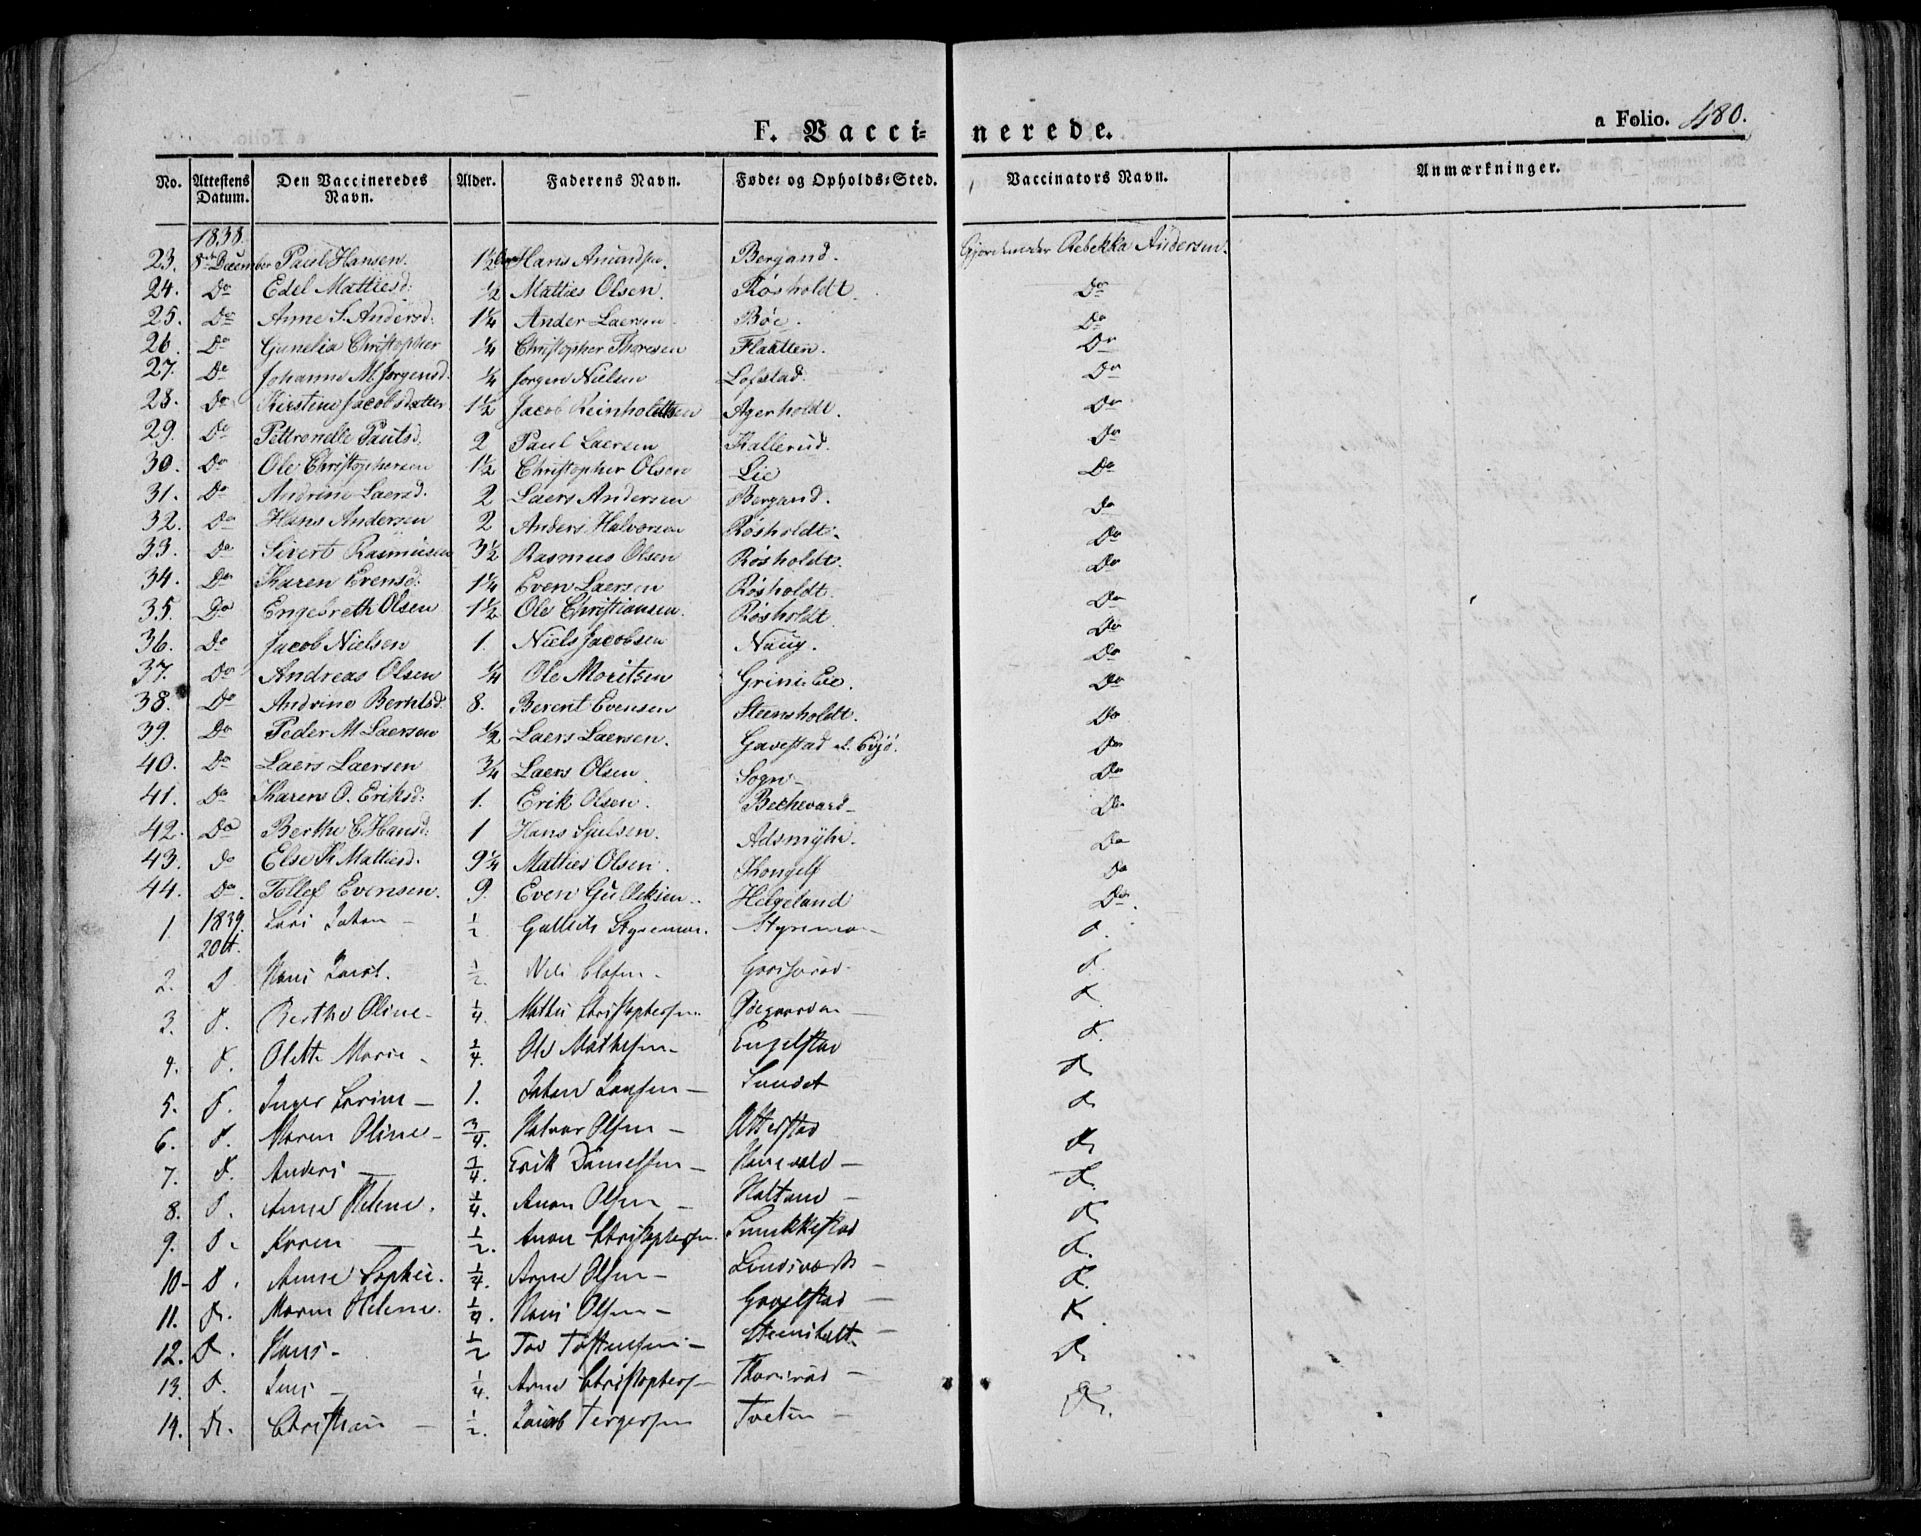 F. Vacci-nerede.
a Folio. 480.
No. Attestens Datum. Den Vaccineredes Navn. Alder. Faderens Navn. Føde- og Opholds-Sted. Vaccinators Navn. Anmærkninger.
1838.
23. 8de December Paul Hansen. 1½ Hans Amundsen. Bergand. Gjordemoder Rebekka Andersen.
24. Do Edel Mattiesd: ½ Matties Olsen. Røsholdt. Do
25. Do Anne S. Andersd: 1¼ Ander Laersen Bøe. Do
26. Do Gunelia Christopher ¼ Christopher Thoresen Flaatten. Do
27. Do Johanne M. Jørgensd. ¼ Jørgen Nielsen Lofstad. Do
28. Do Kirstine Jacobsdatter 1½ Jacob Reinholdtsen Agerholdt. Do
29. Do Pettronelle Paulsd. 2 Paul Laersen Kallerud. Do
30. Do Ole Christophersen 1½ Christopher Olsen Lie Do
31. Do Andrine Laersd. 2 Laers Andersen Bergand. Do
32. Do Hans Andersen 2 Anders Halvorsen Røsholdt. Do
33. Do Sivert Rasmusen 3½ Rasmus Olsen Røsholdt. Do
34. Do Karen Evensd: 1¼ Even Laersen Røsholdt. Do
35. Do Engebreth Olsen 1½ Ole Christiansen. Røsholdt. Do
36. Do Jacob Nielsen 1. Niels Jacobsen Naug. Do
37. Do Andreas Olsen ¼ Ole Moritsen Grini Eie. Do
38. Do Andrine Berntsd. 8. Berent Evensen Steensholdt. Do
39. Do Peder M Laersen ½ Laers Laersen. Gavestad al. Evjø. Do
40. Do Laers Laersen ¾ Laers Olsen. Sogn Do
41. Do Karen O. Eriksd: 1. Erik Olsen. Bechevard Do
42. Do Berthe C. Hansd: 1 Hans Sjulsen. Adsmyhr. Do
43. do Else K. Mattiesd. 9¼ Matties Olsen. Kongelf Do
44. Do Tollef Evensen. 9. Even Gulleksen. Helgeland Do
1839.
1. 20 Lars Johan ½ Gullich Styrmoe. Styrmoe D.
2. D. Hans Jacob. ½ Nils Olsen Gorserud D.
3. D. Berthe Oline ¼. Mathis Christophersen. Ødegaarden D.
4. D. Olette Marie ¼. Ole Mathisen Engelstad D.
5. D. Inger Lorine 1. Johan Hansen Sundet D.
6. D. Maren Oline ¾. Halvor Olsen Atterstad D.
7. D. Anders ¼. Erik Danielsen Hanevold D.
8. D. Anne Helene. ¼. Anon Olsen Haltane D.
9. D. Karen ½. Anon Christophersen. Smukkestad D.
10 D. Anne Sophie. ¼. Arne Olsen Lindsværk D.
11. D. Maren Helene. ¼. Hans Olsen Gavelstad D.
12. D. Hans ½ Tov Tostensen Steinsholt D.
13. D. Jens ¼. Arne Christophers Thorsrud
14. D. Christian ½. Jacob Tergersen Tveten D.